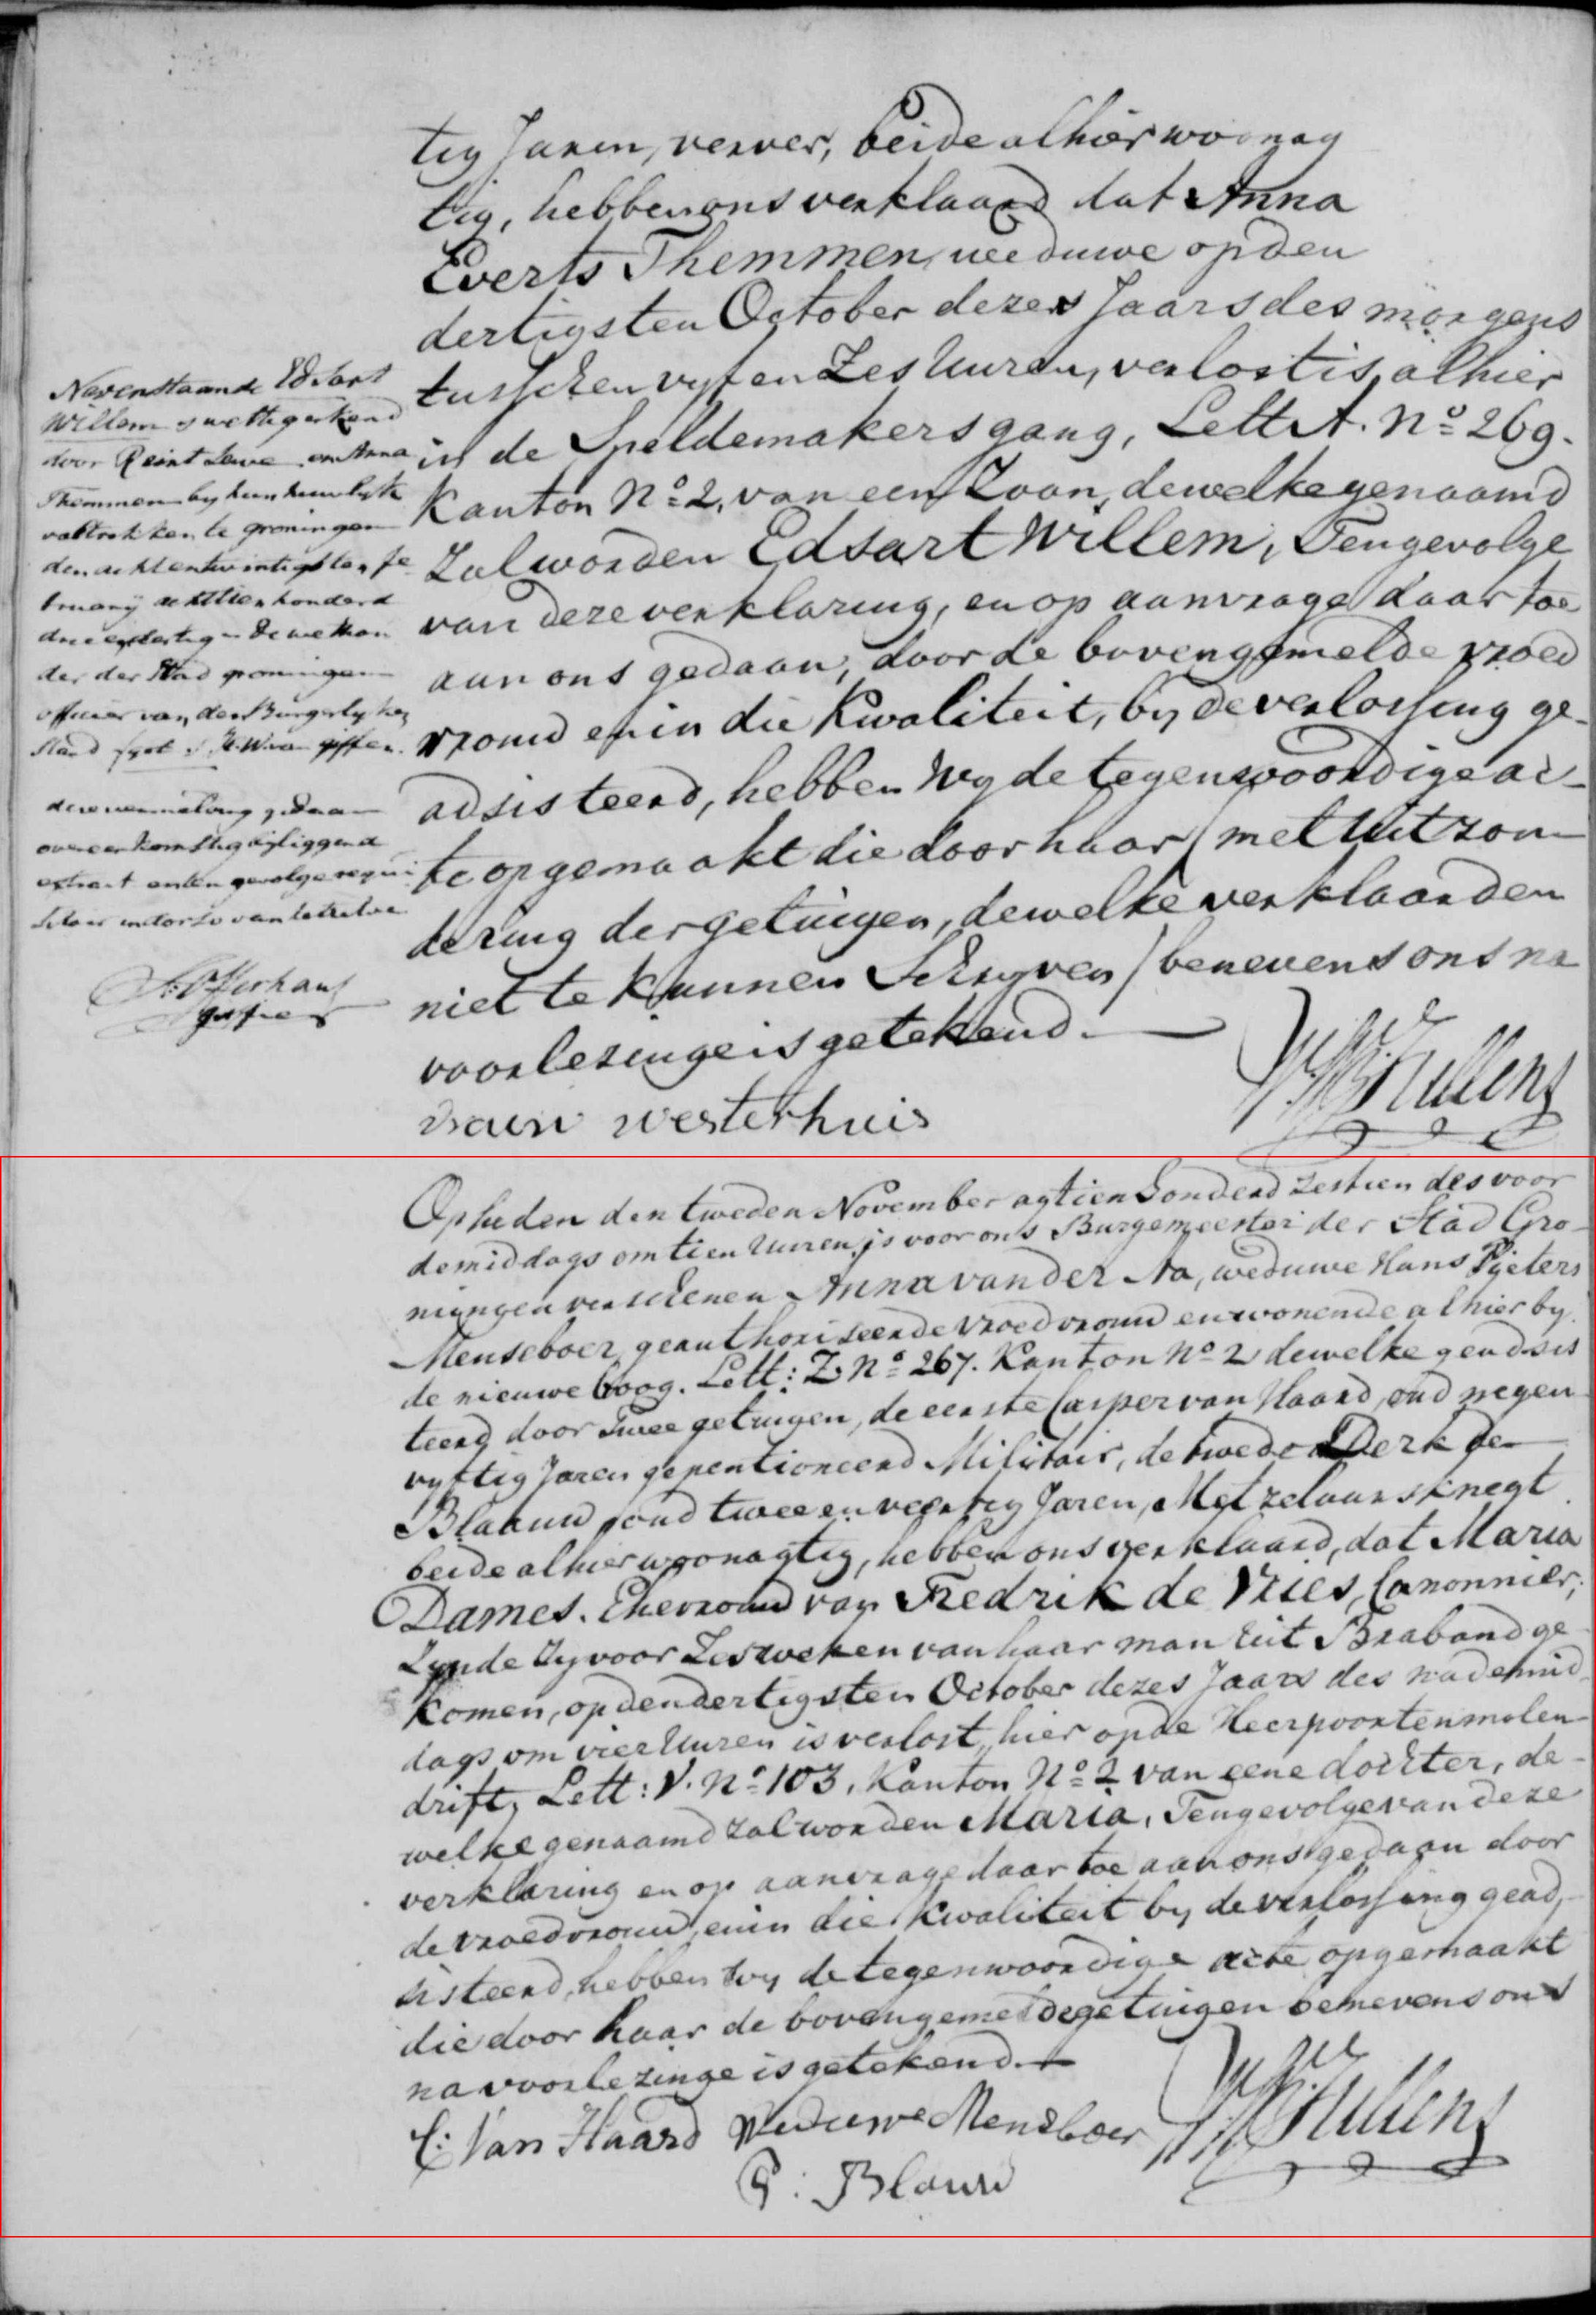 tig Jaren, verver, beide alhier woonag
tig, hebben ons verklaard dat Anna
Everts Themmen, weduwe op den
dertigsten October dezes Jaars des morgens
tusschen vyf en Zes Uuren, verlost is, alhier
in de Speldemakersgang, Lett A. No 269.
Kanton No 2, van een Zoon, dewelke genaamd
Zal worden Edsart Willem, Tengevolge
van deze verklaring, en op aanvrage daar toe
aan ons gedaan, door de bovengemelde vroed
vrouw en in die Kwaliteit, by de verlossing ge-
adsisteerd, hebben Wy de tegenwoordige ac-
te opgemaakt die door haar (met Uitzon
dering der getuigen, dewelke verklaarden
niet te kunnen Schryven) benevens ons na
voorlezinge is getekend.
vrouw westerhuis
Nevenstaande Edsart
Willem is wettig erkend
door Reint Leuve en Anna
Themmen by hun huwlyk
voltrokken te groningen
den acht en twintigsten fe
bruary achttien honderd
drie en dertig en de wethou
der der Stad groningen
officier van den Burgerlyken
Stand
deze vermelding gedaan
overeenkomstig bijliggend
extract en ten gevolge requi
van hetzelve
griffier
Op heden den tweden November agtien honderd zestien des voor
demiddags om tien Uuren, is voor ons Burgemeester der Stad Gro-
ningen verschenen Anna van der Na, weduwe Hans Pieters
Menseboer, geauthoriseerde vroedvrouw en wonende alhier by
de nieuwe boog. Lett: Z. No 267. Kanton No 2 dewelke geadsis
teerd door Twee getuigen, de eerste Casper van Haard, oud negen
vyftig Jaren gepentioneerd Militair, de twede Derk de
Blaauw, oud twee en veertig Jaren, Metzelaarsknegt
beide alhier woonagtig, hebben ons verklaard, dat Maria
Dames. Ehevrouw van Fredrik de Vries, Canonnier,
Zynde Zy voor Zes weken van haar man uit Braband ge
komen, op den dertigsten October dezes Jaars des nademid-
dags om vier Uuren is verlost, hier op de Heerpoortenmolen-
drift, Lett: V. No 103. Kanton No 2 van eene dochter, de-
welke genaamd zal worden Maria. Tengevolge van deze
verklaring en op aanvrage daar toe aan ons gedaan door
de vroedvrouw, en in die Kwaliteit by de verlossing gead-
sisteerd, hebben Wy de tegenwoordige acte opgemaakt
die door haar de bovengemelde getuigen benevens ons
na voorlezinge is getekend.
C: Van Haard Weduwe Mensboer
Blauw